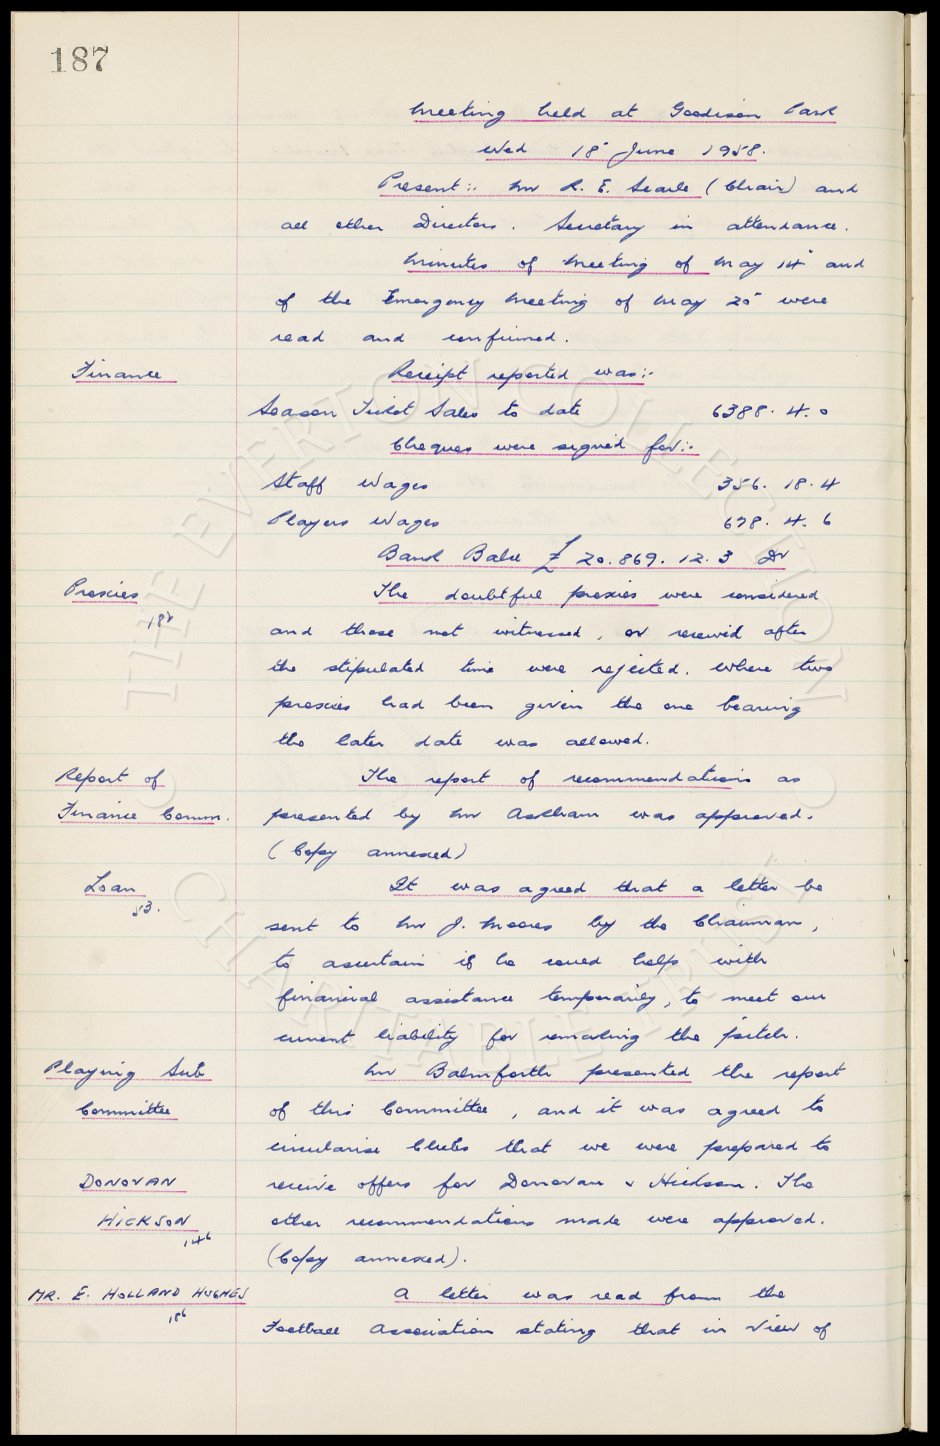 187
Meeting held at Goodison Park
Wed 18" June 1958.
Present:- Mr R. E. Searle (Chair) and
all other Directors. Secretary in attendance.
Minutes of Meeting of May 14" and
of the Emergency Meeting of May 20" were
read and confirmed.
Finance
Receipt reported was:-
Season Ticket Sales to date 6388. 4. 0
Cheques were signed for:-
Staff Wages 356. 18. 4
Players Wages 678. 4. 6
Bank Balce £20.869. 12. 3 Dr
Proxies
The doubtful proxies were considered
and those not witnessed, or received after
the stipulated time were rejected. Where two
proxies had been given the one bearing
the later date was allowed.
Report of
Finance Comm.
The report of recommendations as
presented by Mr Askham was approved.
(Copy annexed)
Loan
53.
It was agreed that a letter be
sent to Mr J. Moores by the Chairman,
to ascertain if he could help with
financial assistance temporarily, to meet our
current liability for remaking the pitch.
Playing Sub
Committee
Mr Balmforth presented the report
of this Committee, and it was agreed to
circularise Clubs that we were prepared to
DONOVAN
receive offers for Donovan & Hickson. The
HICKSON
146
other recommendations made were approved.
(Copy annexed).
MR. E. HOLLAND HUGHES
186
A letter was read from the
Football Association stating that in view of
THE EVERTON COLLECTION
CHARITABLE TRUST